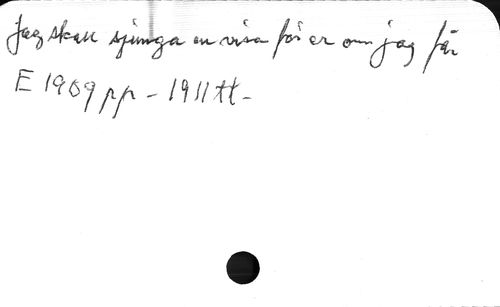 Jag skall sjunga en visa för er om jag får
E 1969 pp - 1911 tt -